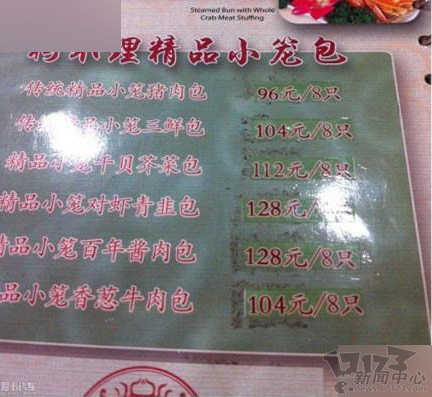 Steamed Bun with Whole
Crab Meat Stuffing
理精品小笼包
传统精品小笼猪肉包 96元/8只
传统精品小笼三鲜包 104元/8只
精品小笼干贝芥菜包 112元/8只
精品小笼对虾青韭包 128元/8只
精品小笼百年酱肉包 128元/8只
品小笼香葱牛肉包 104元/8只
爱卡汽车
新闻中心